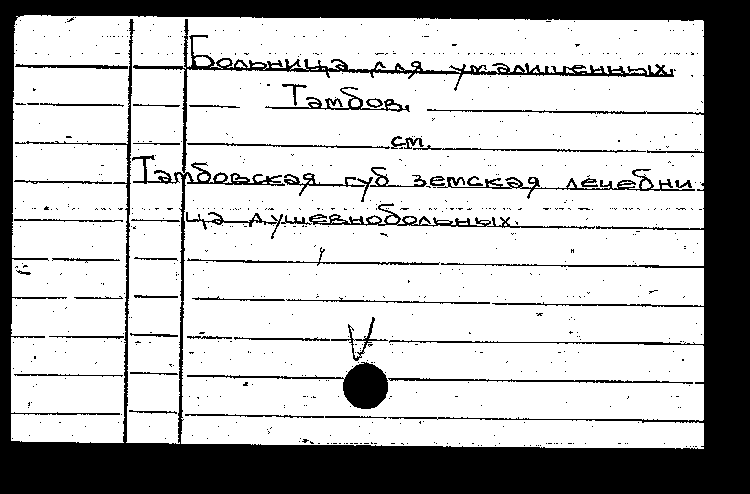 Больница для умалишенных.
Тамбов.
ст.
Тамбовская губ земская лечебни-
ца душевнобольных.